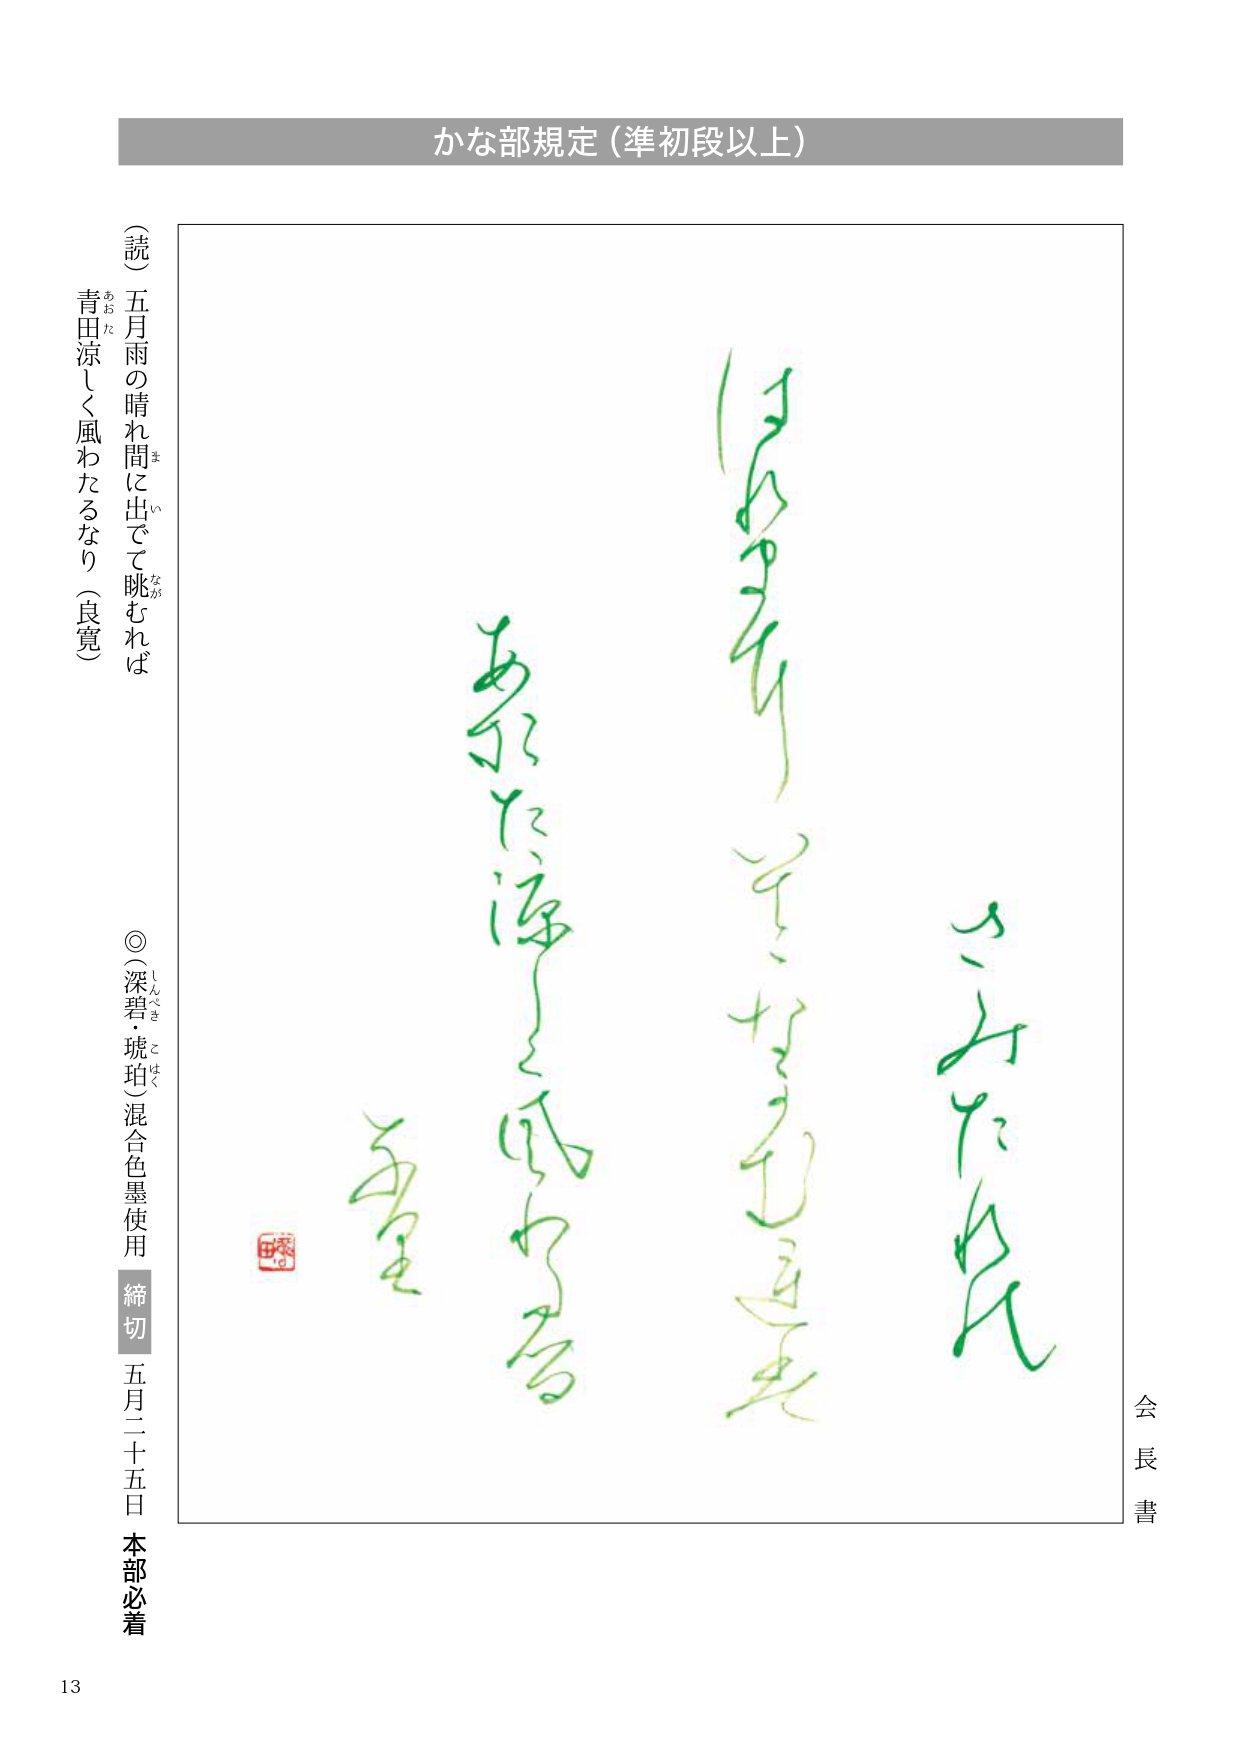 かな部規定（準初段以上）
会長書
さみたれの
はれまに
いてゝなかむ連者
あおた涼しく風わたる
な里
（読）五月雨の晴れ間に出でて眺むれば
青田涼しく風わたるなり（良寛）
◎（深碧・琥珀）混合色墨使用 締切 五月二十五日 本部必着
13